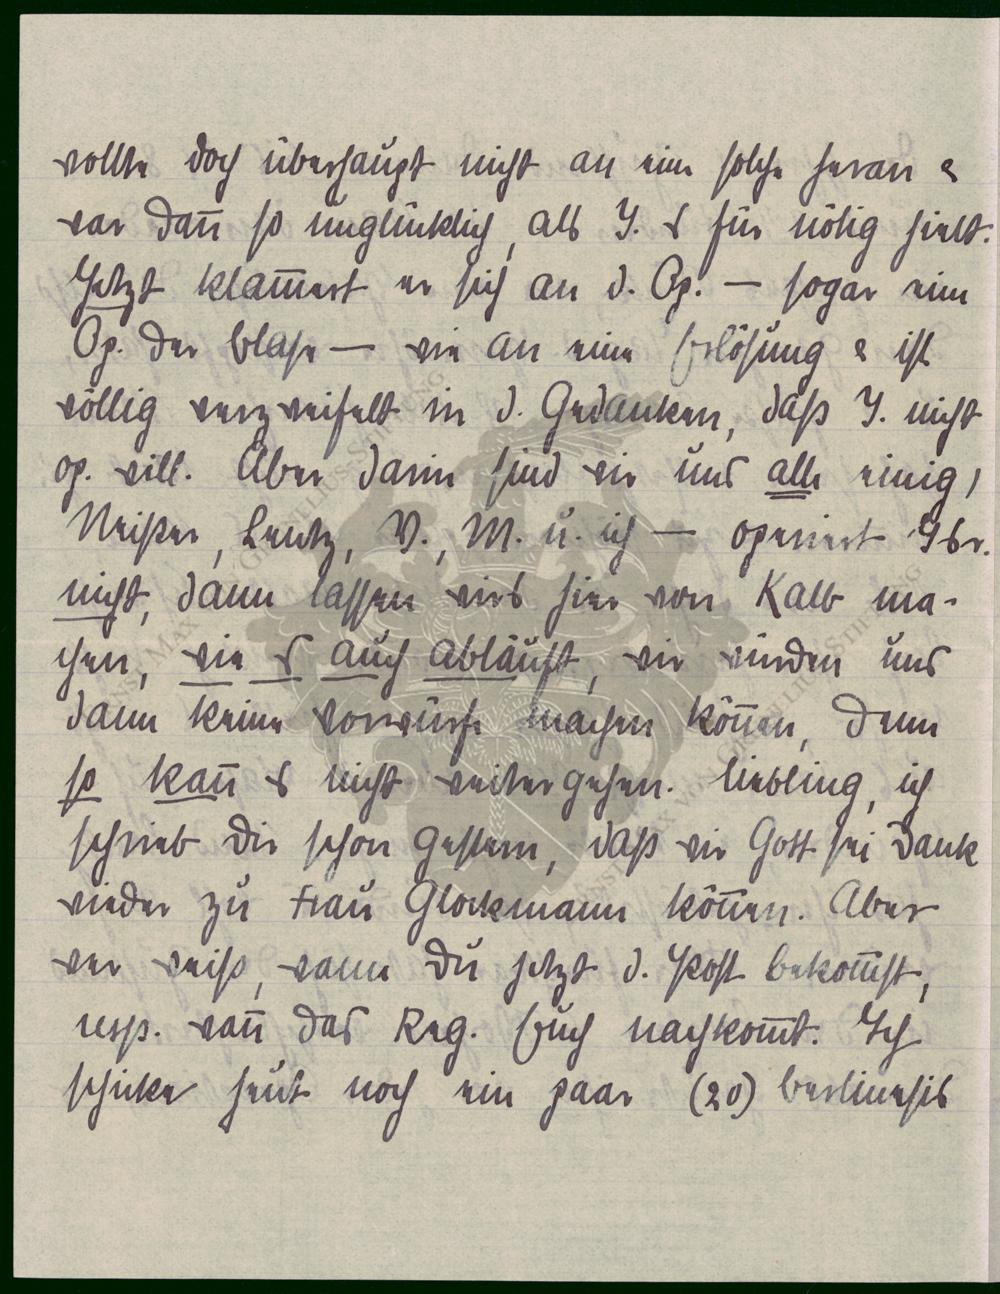 wollte doch überhaupt nicht an eine solche heran &
war dann so unglücklich, als J. es für nötig hielt.
Jetzt klammert er sich an d. Op. — sogar eine
Op. der Blase — wie an eine Erlösung & ist
völlig verzweifelt in d. Gedanken, daß J. nicht
op. will. Aber darin sind wir uns alle einig,
Neißer, Lentz, V., M. u. ich — operiert Isr.
nicht, dann lassen wirs hier von Kalb ma-
chen, wie es auch abläuft, wir würden uns
dann keine Vorwürfe machen können, denn
so kann es nicht weitergehen. Liebling, ich
schrieb Dir schon gestern, daß wir Gott sei Dank
wieder zu Frau Glockmann können. Aber
wer weiß, wann Du jetzt d. Post bekommst,
resp. wann das Reg. Euch nachkommt. Ich
schicke heut noch ein paar (20)